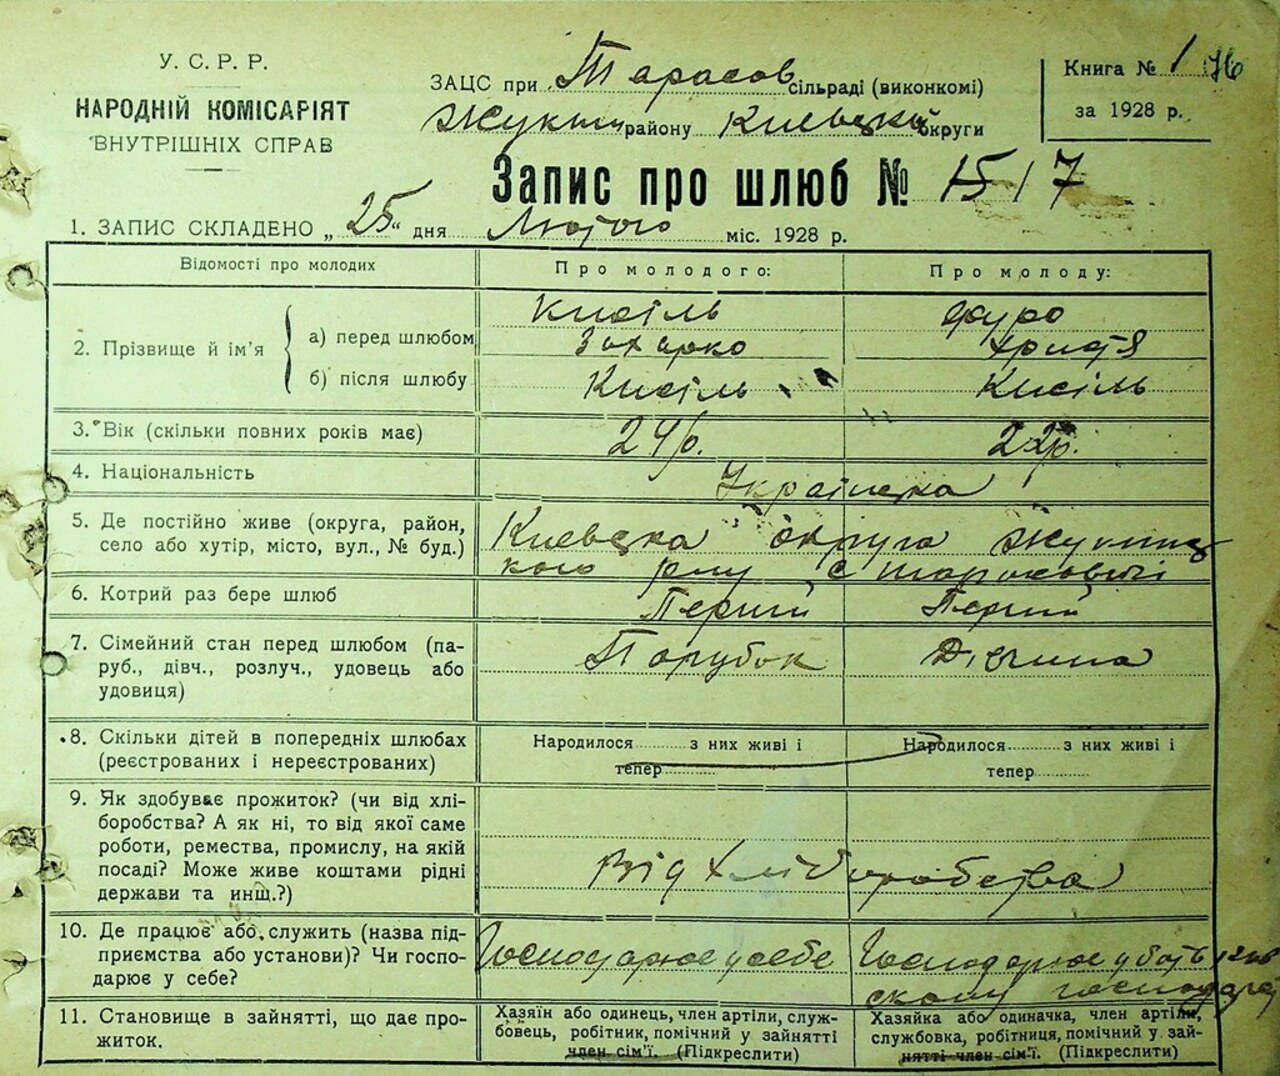 У. С. Р. Р.
НАРОДНІЙ КОМІСАРІЯТ
ВНУТРІШНІХ СПРАВ
ЗАЦС при Тарасов сільраді (виконкомі)
району Киевської округи
Книга № 1 76
за 1928 р.
Запис про шлюб № 15 17
1. ЗАПИС СКЛАДЕНО „25“ дня Лютого міс. 1928 р.
Відомості про молодих
Про молодого:
Про молоду:
2. Прізвище й ім'я
а) перед шлюбом
б) після шлюбу
Кисіль
Захарко
Кисіль
Фуро
Христя
Кисіль
3. Вік (скільки повних років має)
24р.
22р.
4. Національність
Українска
5. Де постійно живе (округа, район,
село або хутір, місто, вул., № буд.)
Киевска округа Жукинс
кого рну с
6. Котрий раз бере шлюб
Перший
Перший
7. Сімейний стан перед шлюбом (па-
руб., дівч., розлуч., удовець або
удовиця)
Парубок
Дівчина
8. Скільки дітей в попередніх шлюбах
(реєстрованих і нереєстрованих)
Народилося з них живі і
тепер
Народилося з них живі і
тепер
9. Як здобуває прожиток? (чи від хлі-
боробства? А як ні, то від якої саме
роботи, ремества, промислу, на якій
посаді? Може живе коштами рідні
держави та инщ.?)
Від Хліборобства
10. Де працює або служить (назва під-
приємства або установи)? Чи госпо-
дарює у себе?
Господарює у себе
Господарює у батьків
скому господар
11. Становище в зайнятті, що дає про-
житок.
Хазяїн або одинець, член артілі, служ-
бовець, робітник, помічний у зайнятті
член сім'ї. (Підкреслити)
Хазяйка або одиначка, член артілі,
службовка, робітниця, помічний у зай-
нятті член сім'ї. (Підкреслити)